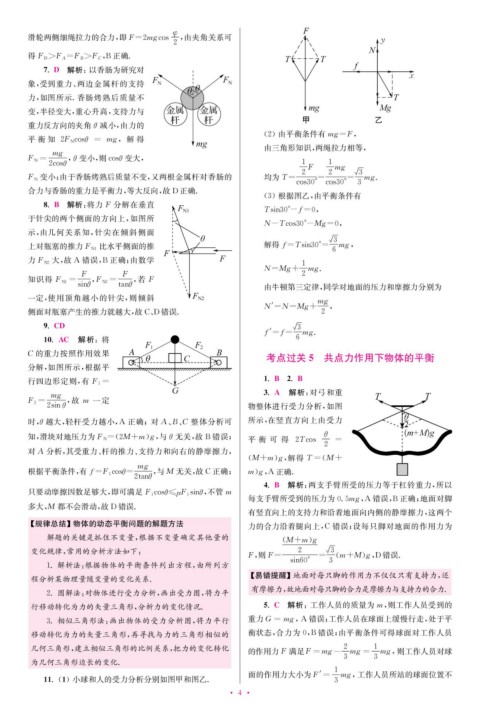 滑轮两侧细绳拉力的合力,即 F=2mgcos φ/2,由夹角关系可
得 F_D>F_A=F_B>F_C,B 正确.
7. D 解析:以香肠为研究对
象,受到重力、两边金属杆的支持
力,如图所示. 香肠烤熟后质量不
变,半径变大,重心升高,支持力与
重力反方向的夹角 θ 减小,由力的
平衡知 2F_N cosθ = mg,解得
F_N = mg/2cosθ,θ 变小,则 cosθ 变大,
F_N 变小;由于香肠烤熟后质量不变,又两根金属杆对香肠的
合力与香肠的重力是平衡力,等大反向,故 D 正确.
F_N
F_N
θ θ
金属杆
金属杆
mg
8. B 解析:将力 F 分解在垂直
于针尖的两个侧面的方向上,如图所
示,由几何关系知,针尖在倾斜侧面
上对瓶塞的推力 F_N1 比水平侧面的推
力 F_N2 大,故 A 错误,B 正确;由数学
知识得 F_N1 = F/sinθ,F_N2 = F/tanθ,若 F
一定,使用顶角越小的针尖,则倾斜
侧面对瓶塞产生的推力就越大,故 C、D 错误.
F_N1
θ
F
F
F_N2
9. CD
10. AC 解析:将
C 的重力按照作用效果
分解,如图所示,根据平
行四边形定则,有 F₁ =
F₂ = mg/2sin θ,故 m 一定
时,θ 越大,轻杆受力越小,A 正确;对 A、B、C 整体分析可
知,滑块对地压力为 F_N=(2M+m)g,与 θ 无关,故 B 错误;
对 A 分析,其受重力、杆的推力、支持力和向右的静摩擦力,
根据平衡条件,有 f=F₁cosθ= mg/2tanθ,与 M 无关,故 C 正确;
只要动摩擦因数足够大,即可满足 F₁cosθ≤μF₁sinθ,不管 m
多大,M 都不会滑动,故 D 错误.
F₁ F₂
A θ C B
G
【规律总结】物体的动态平衡问题的解题方法
解题的关键是抓住不变量,根据不变量确定其他量的
变化规律,常用的分析方法如下:
1. 解析法:根据物体的平衡条件列出方程,由所列方
程分析某物理量随变量的变化关系.
2. 图解法:对物体进行受力分析,画出受力图,将力平
行移动转化为力的矢量三角形,分析力的变化情况.
3. 相似三角形法:画出物体的受力分析图,将力平行
移动转化为力的矢量三角形,再寻找与力的三角形相似的
几何三角形,建立相似三角形的比例关系,把力的变化转化
为几何三角形边长的变化.
11. (1) 小球和人的受力分析分别如图甲和图乙.
F
T T
mg
甲
y
N
f
x
T
Mg
乙
(2) 由平衡条件有 mg=F,
由三角形知识,两绳拉力相等,
均为 T= (1/2 F)/cos30° = (1/2 mg)/cos30° = √3/3 mg.
(3) 根据图乙,由平衡条件有
Tsin30°-f=0,
N-Tcos30°-Mg=0,
解得 f=Tsin30°= √3/6 mg,
N=Mg+ 1/2 mg.
由牛顿第三定律,同学对地面的压力和摩擦力分别为
N′=N=Mg+ mg/2,
f′=f= √3/6 mg.
考点过关 5 共点力作用下物体的平衡
1. B 2. B
3. A 解析:对弓和重
物整体进行受力分析,如图
所示,在竖直方向上由受力
平衡可得 2Tcos θ/2 =
(M+m)g,解得 T=(M+
m)g,A 正确.
T T
θ
(m+M)g
4. B 解析:两支手臂所受的压力等于杠铃重力,所以
每支手臂所受到的压力为 0.5mg,A 错误,B 正确;地面对脚
有竖直向上的支持力和沿着地面向内侧的静摩擦力,这两个
力的合力沿着腿向上,C 错误;设每只脚对地面的作用力为
F,则 F= ((M+m)g/2)/sin60° = √3/3 (m+M)g,D 错误.
【易错提醒】地面对每只脚的作用力不仅仅只有支持力,还
有摩擦力,故地面对每只脚的合力是摩擦力与支持力的合力.
5. C 解析:工作人员的质量为 m,则工作人员受到的
重力 G = mg,A 错误;工作人员在球面上缓慢行走,处于平
衡状态,合力为 0,B 错误;由平衡条件可得球面对工作人员
的作用力 F 满足 F= mg- 2/3 mg= 1/3 mg,则工作人员对球
面的作用力大小为 F′= 1/3 mg,工作人员所站的球面位置不
· 4 ·